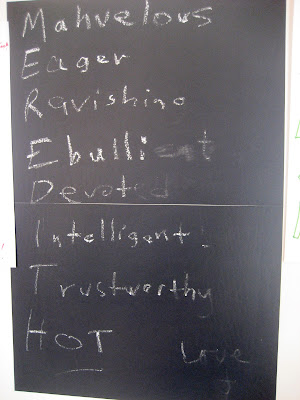 Mahvelous
Eager
Ravishing
Ebullient
Devoted
Intelligent!
Trustworthy
HOT
Love
J